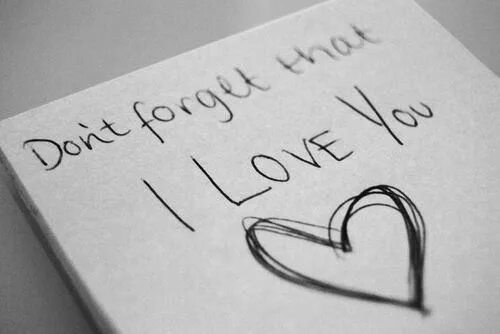 Don't forget that
I LOVE YOU